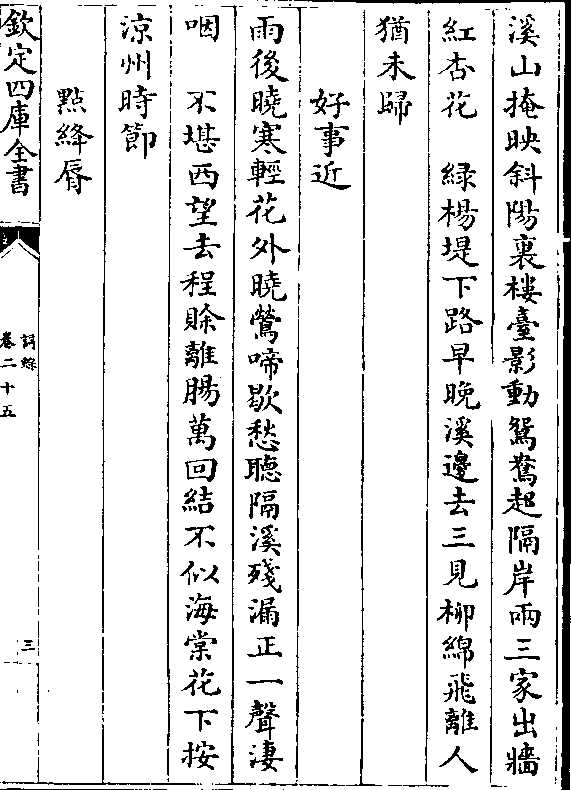 溪山掩映斜陽裏樓臺影動鴛鴦起隔岸兩三家出牆
紅杏花　緑楊堤下路早晚溪邊去三見柳綿飛離人
猶未歸
好事近
雨後曉寒輕花外曉鶯啼歇愁聽隔溪殘漏正一聲淒
咽　不堪西望去程賒離腸萬回結不似海棠花下按
涼州時節
點絳脣
欽定四庫全書
詞綜
卷二十五
三